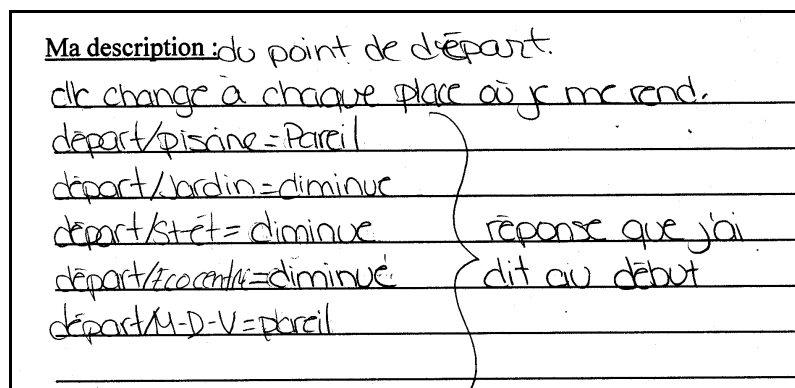 Ma description : du point de départ.
elle change à chaque place où je me rend.
départ/piscine = Pareil
départ/Jardin = diminue
départ/St-ét = diminue
départ/Ecocentre = diminué
départ/M-D-V = pareil
réponse que j'ai
dit au début